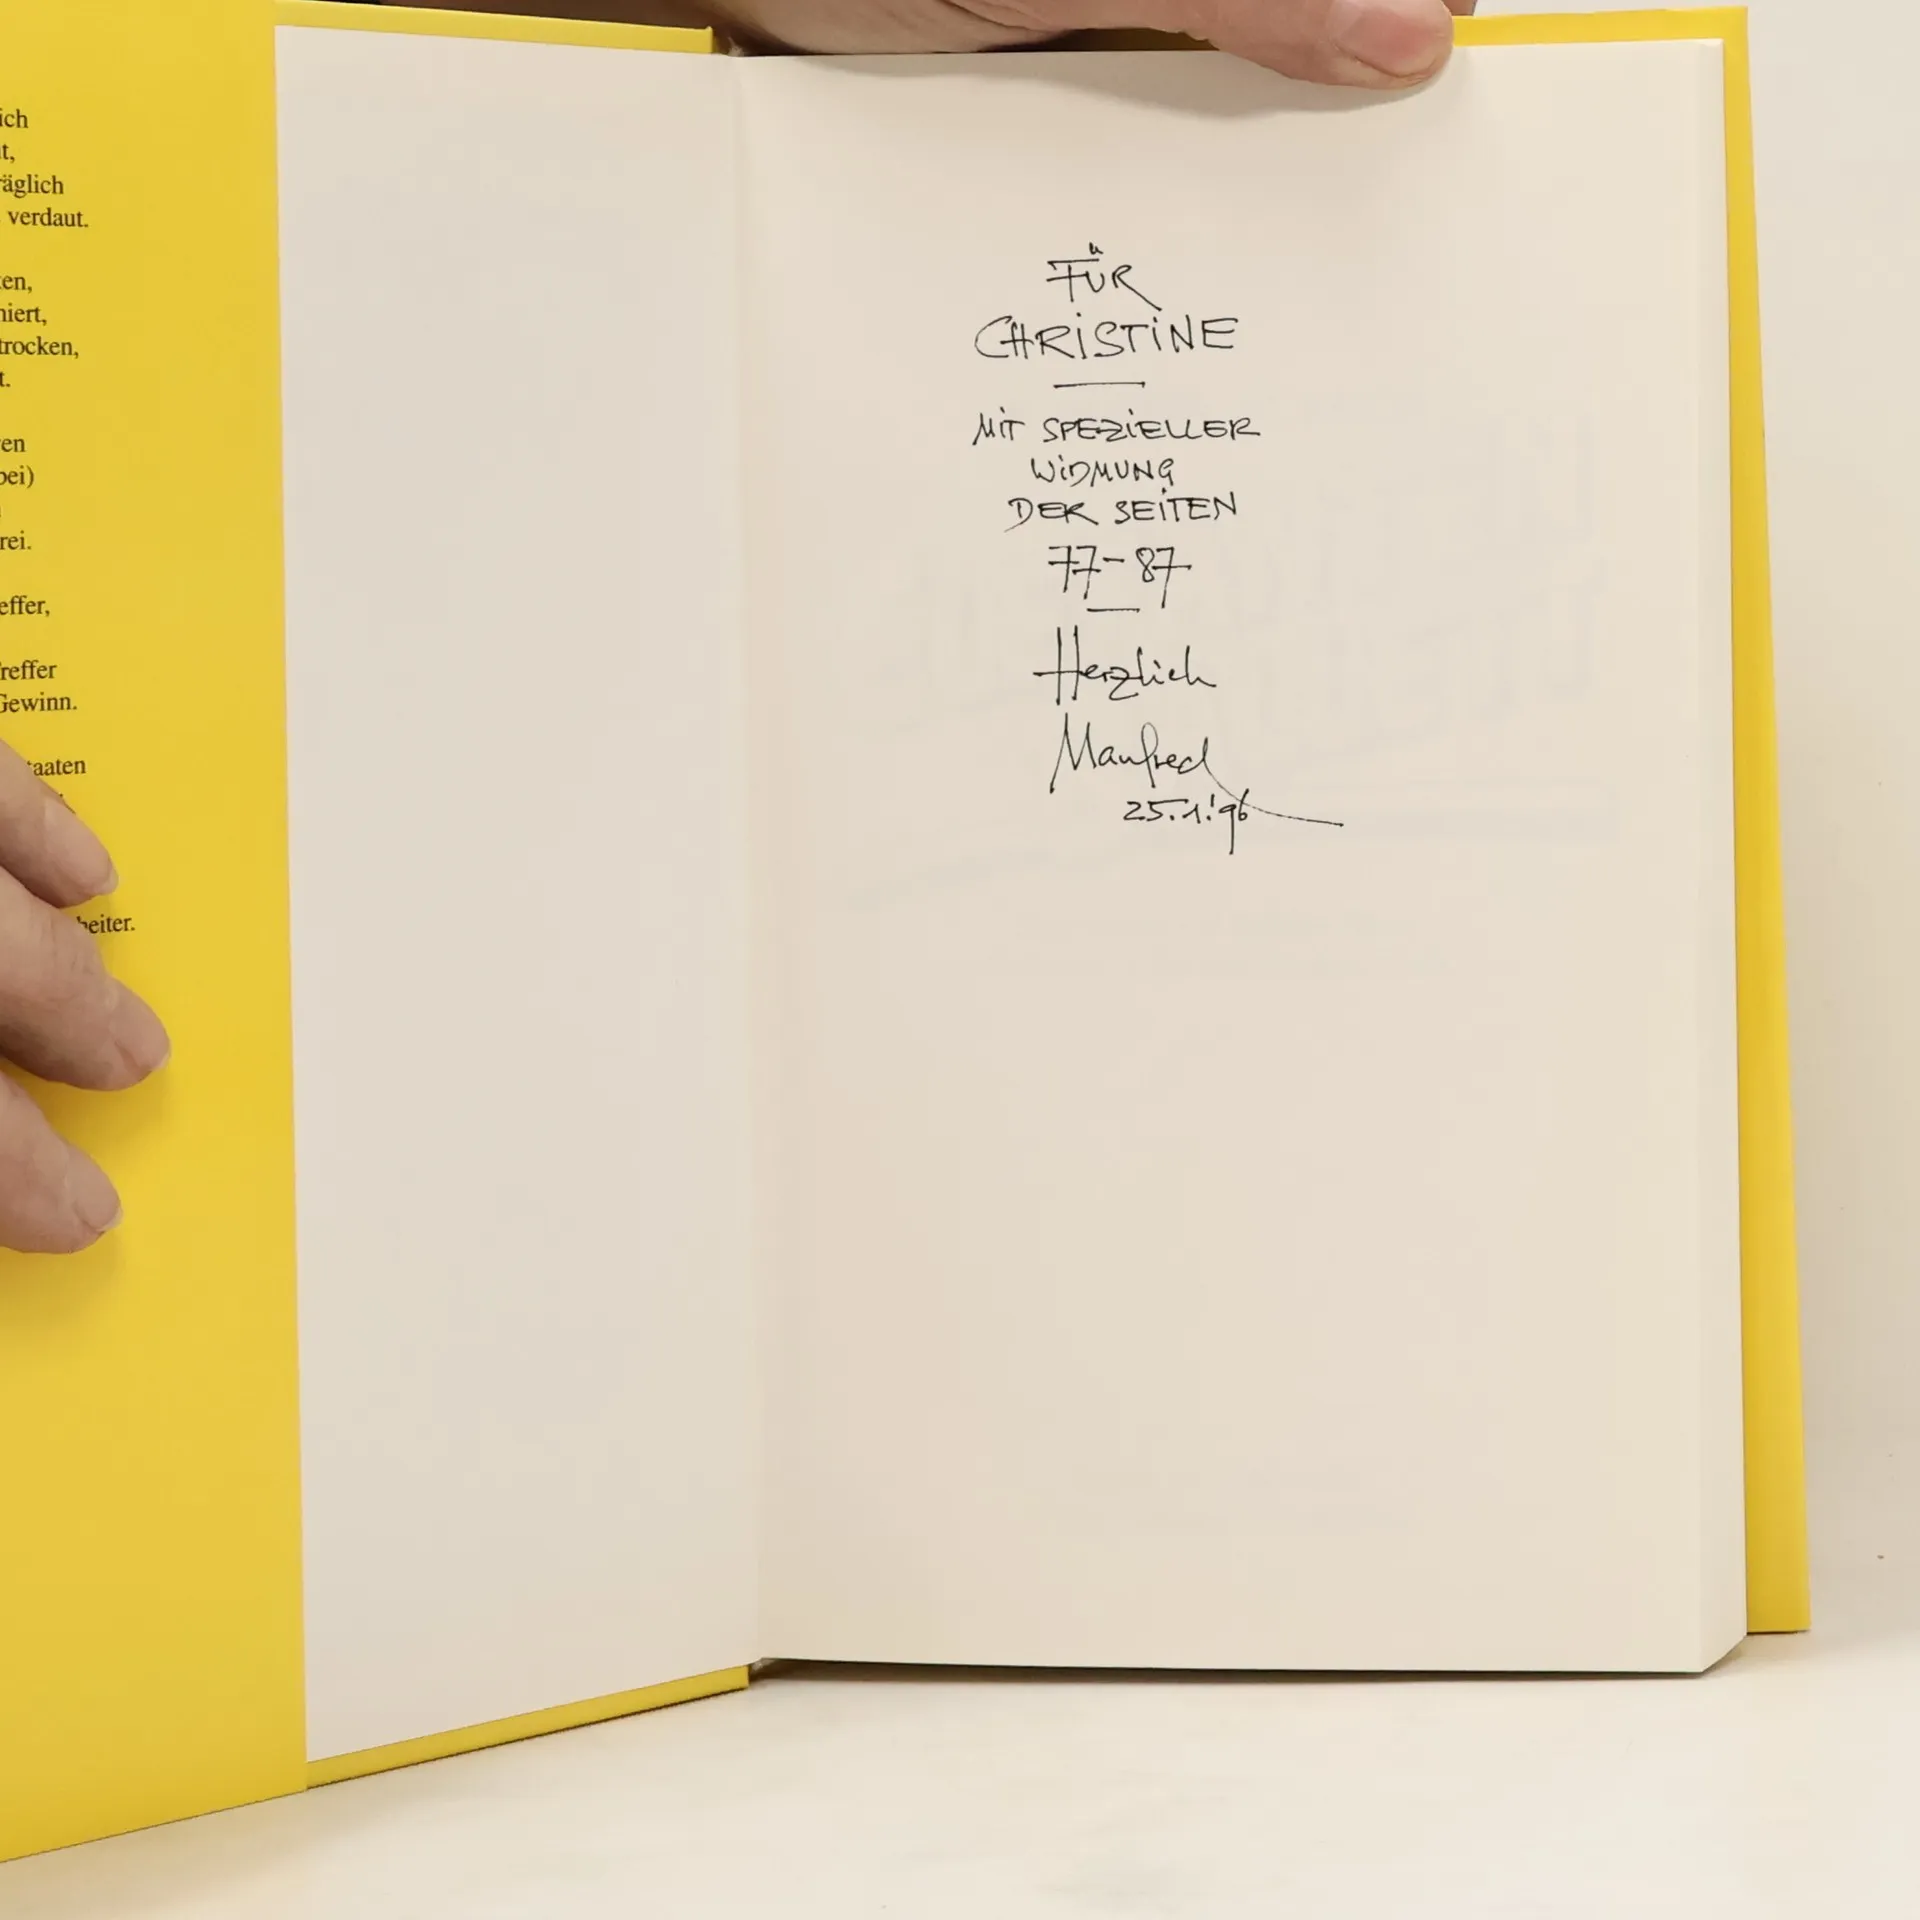 ich
t,
räglich
verdaut.
en,
niert,
trocken,
t.
en
bei)
rei.
effer,
reffer
Gewinn.
taaten
heiter.
FÜR
CHRISTINE
MIT SPEZIELLER
WIDMUNG
DER SEITEN
77-87
Herzlich
Manfred
25.1.'96